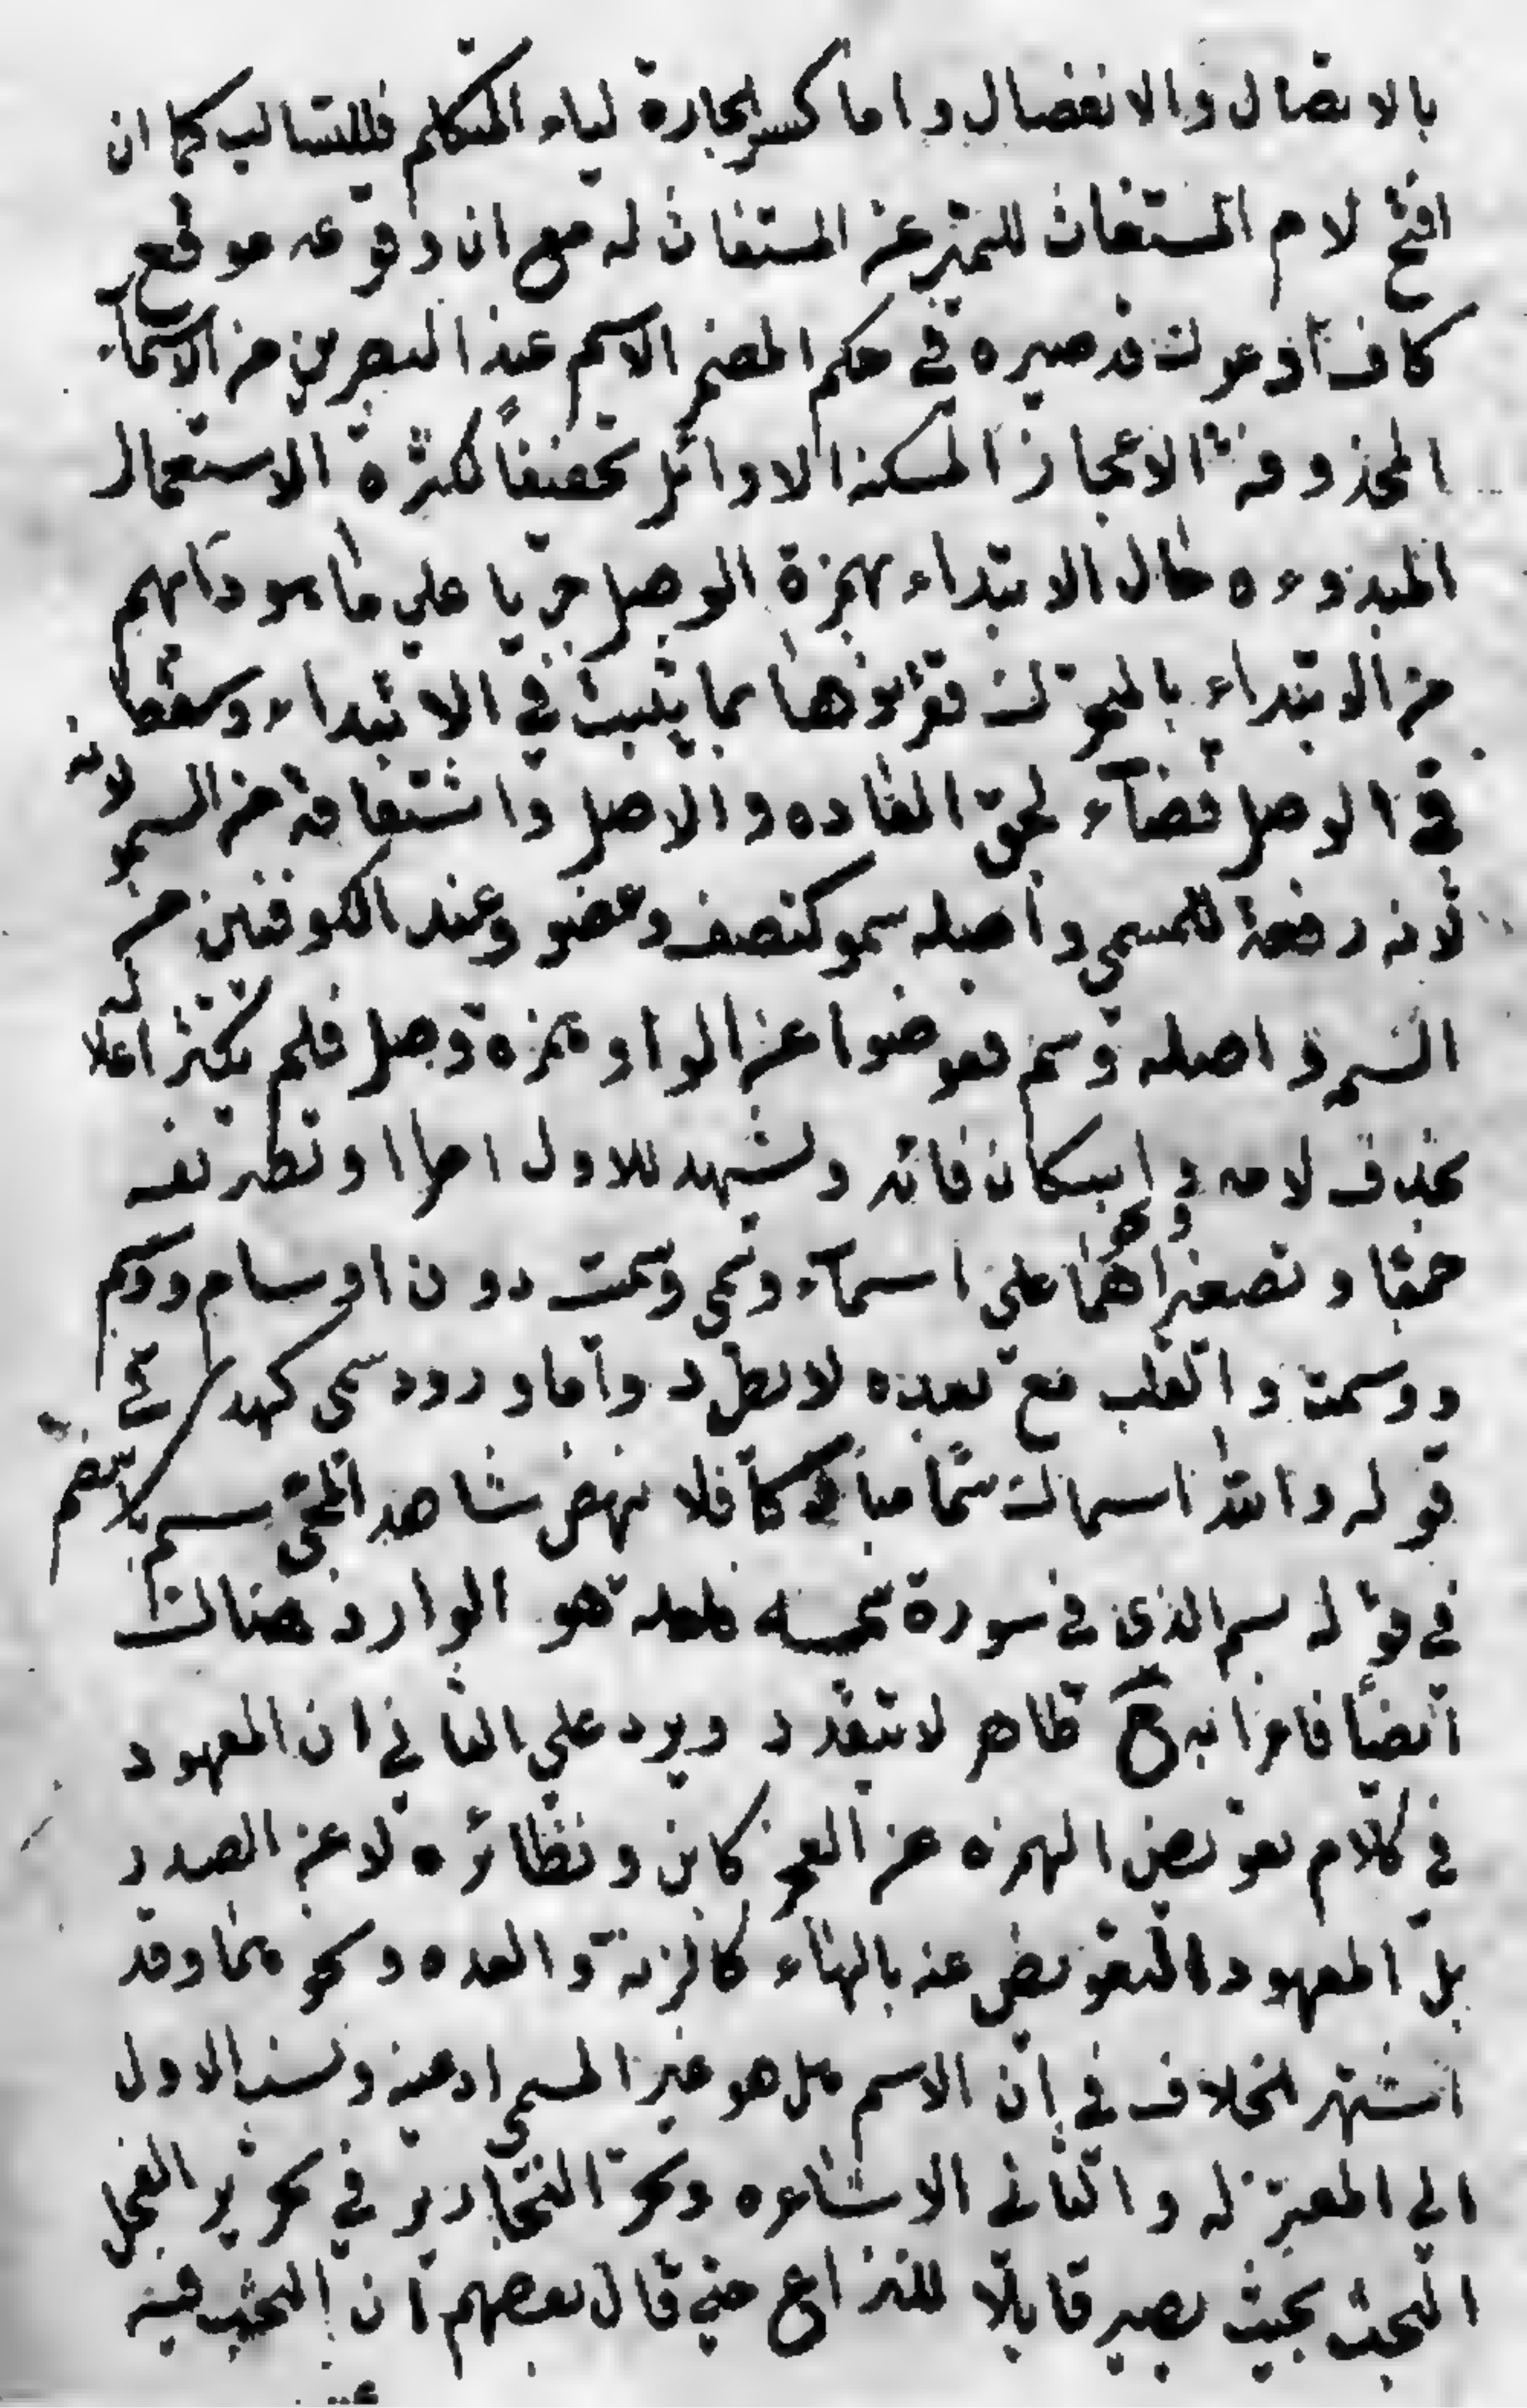 بالاتصال والانفصال واما كسر الجارة لياء المتكلم فللتناسب كما ان
افتح لام المستغاث للتميز عن المستغاث له مع ان وقوعه موقع
كاف ادعوك قد صيره في حكم المضمر الاسم عند البصريين من الاسماء
المحذوفة الاعجاز المسكنة الاوائل تخفيفاً لكثرة الاستعمال
المبدوءه حال الابتداء بهمزة الوصل جريا على ما هو دابهم
من الابتداء بالمتحرك فقرنوها بما يثبت في الابتداء وسقط
في الوصل قضآء لحق العاده والاصل واشتقاقه من السمو لانه
لانه رفعة للمسمى واصله سمو كنصف وعضو وعند الكوفيين من
السمة واصله وسم فعوضوا عن الواو همزة وصل فلم يكثر اعلاله
بحذف لامه واسكان فائه ويشهد للاول اطراد تصريفه
جمعا وتصغيرا وهما على اسمآء وسمي وسميت دون اوسام ووسيم
ووسمت والقلب مع بعده لا يطرد واما ورود سمى كهدى في
قوله والله اسماك سما مباركا فلا ينهض شاهدا لمجئ سم بلاضم
في قوله بسم الذي في سورة سمه فلعله هو الوارد هنالك
ايضا فاعرابه ح ظاهر لا يتقدر ويرد على الثاني ان المعهود
في كلامهم تعويض الهمزه عن العجز كابن ونظائره لا عن الصدر
بل المعهود التعويض عنه بالهاء كالزنة والعده ونحوهما وقد
اشتهر الخلاف في ان الاسم هل هو غير المسمى اوعينه ونسب الاول
الى المعتزله والثاني الاشاعره وتحير النحارير في تحرير محل
البحث بحيث يصير قابلا للنزاع حتى قال بعضهم ان البحث فيه